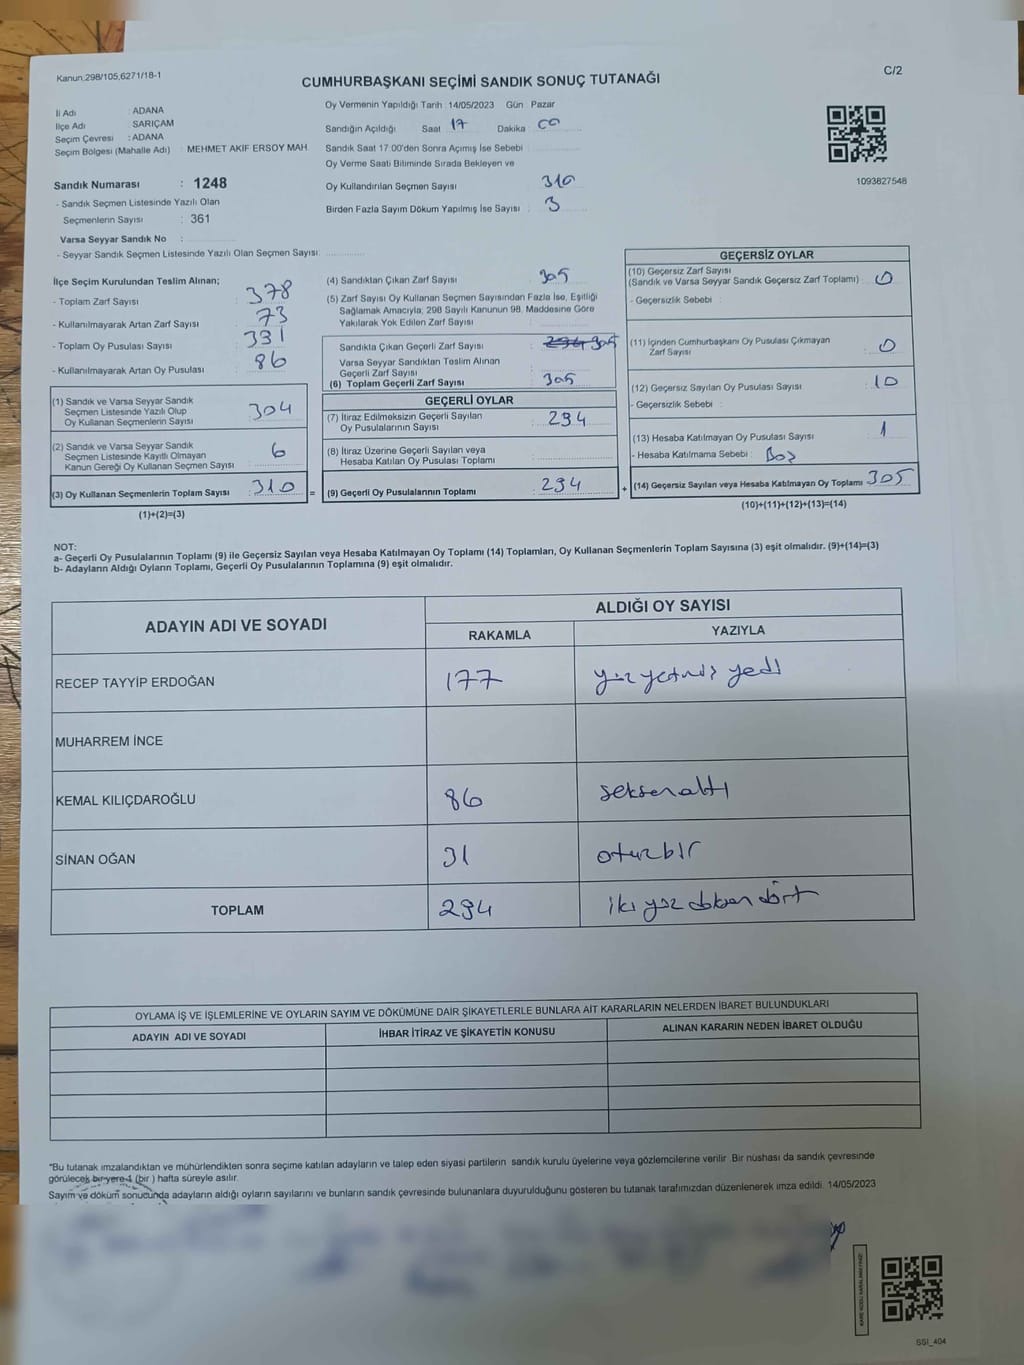 Kanun:298/105,6271/18-1
C/2
CUMHURBAŞKANI SEÇİMİ SANDIK SONUÇ TUTANAĞI
İl Adı : ADANA
İlçe Adı : SARIÇAM
Seçim Çevresi : ADANA
Seçim Bölgesi (Mahalle Adı) : MEHMET AKİF ERSOY MAH
Oy Vermenin Yapıldığı Tarih :14/05/2023 Gün Pazar
Sandığın Açıldığı Saat 17 Dakika 00
Sandık Saat 17:00'den Sonra Açımış İse Sebebi :
Oy Verme Saati Bitiminde Sırada Bekleyen ve
Oy Kullandırılan Seçmen Sayısı : 310
Birden Fazla Sayım Döküm Yapılmış İse Sayısı : 3
1093827548
Sandık Numarası : 1248
- Sandık Seçmen Listesinde Yazılı Olan
Seçmenlerin Sayısı : 361
Varsa Seyyar Sandık No :
- Seyyar Sandık Seçmen Listesinde Yazılı Olan Seçmen Sayısı:
İlçe Seçim Kurulundan Teslim Alınan;
- Toplam Zarf Sayısı : 378
- Kullanılmayarak Artan Zarf Sayısı : 73
- Toplam Oy Pusulası Sayısı : 331
- Kullanılmayarak Artan Oy Pusulası : 86
(1) Sandık ve Varsa Seyyar Sandık
Seçmen Listesinde Yazılı Olup
Oy Kullanan Seçmenlerin Sayısı : 304
(2) Sandık ve Varsa Seyyar Sandık
Seçmen Listesinde Kayıtlı Olmayan
Kanun Gereği Oy Kullanan Seçmen Sayısı : 6
(3) Oy Kullanan Seçmenlerin Toplam Sayısı : 310 =
(1)+(2)=(3)
(4) Sandıktan Çıkan Zarf Sayısı : 305
(5) Zarf Sayısı Oy Kullanan Seçmen Sayısından Fazla İse, Eşitliği
Sağlamak Amacıyla; 298 Sayılı Kanunun 98. Maddesine Göre
Yakılarak Yok Edilen Zarf Sayısı :
Sandıkta Çıkan Geçerli Zarf Sayısı : 294 305
Varsa Seyyar Sandıktan Teslim Alınan
Geçerli Zarf Sayısı :
(6) Toplam Geçerli Zarf Sayısı : 305
GEÇERLİ OYLAR
(7) İtiraz Edilmeksizin Geçerli Sayılan
Oy Pusulalarının Sayısı : 294
(8) İtiraz Üzerine Geçerli Sayılan veya
Hesaba Katılan Oy Pusulası Toplamı :
(9) Geçerli Oy Pusulalarının Toplamı : 294 +
GEÇERSİZ OYLAR
(10) Geçersiz Zarf Sayısı
(Sandık ve Varsa Seyyar Sandık Geçersiz Zarf Toplamı) : 0
- Geçersizlik Sebebi :
(11) İçinden Cumhurbaşkanı Oy Pusulası Çıkmayan
Zarf Sayısı : 0
(12) Geçersiz Sayılan Oy Pusulası Sayısı : 10
- Geçersizlik Sebebi :
(13) Hesaba Katılmayan Oy Pusulası Sayısı : 1
- Hesaba Katılmama Sebebi : Boş
(14) Geçersiz Sayılan veya Hesaba Katılmayan Oy Toplamı : 305
(10)+(11)+(12)+(13)=(14)
NOT:
a- Geçerli Oy Pusulalarının Toplamı (9) ile Geçersiz Sayılan veya Hesaba Katılmayan Oy Toplamı (14) Toplamları, Oy Kullanan Seçmenlerin Toplam Sayısına (3) eşit olmalıdır. (9)+(14)=(3)
b- Adayların Aldığı Oyların Toplamı, Geçerli Oy Pusulalarının Toplamına (9) eşit olmalıdır.
ADAYIN ADI VE SOYADI
ALDIĞI OY SAYISI
RAKAMLA YAZIYLA
RECEP TAYYİP ERDOĞAN 177 yüz yetmiş yedi
MUHARREM İNCE
KEMAL KILIÇDAROĞLU 86 seksen altı
SİNAN OĞAN 31 otuz bir
TOPLAM 294 iki yüz doksan dört
OYLAMA İŞ VE İŞLEMLERİNE VE OYLARIN SAYIM VE DÖKÜMÜNE DAİR ŞİKAYETLERLE BUNLARA AİT KARARLARIN NELERDEN İBARET BULUNDUKLARI
ADAYIN ADI VE SOYADI İHBAR İTİRAZ VE ŞİKAYETİN KONUSU ALINAN KARARIN NEDEN İBARET OLDUĞU
*Bu tutanak imzalandıktan ve mühürlendikten sonra seçime katılan adayların ve talep eden siyasi partilerin sandık kurulu üyelerine veya gözlemcilerine verilir. Bir nüshası da sandık çevresinde
görülecek bir yere 1 (bir ) hafta süreyle asılır.
Sayım ve döküm sonucunda adayların aldığı oyların sayılarını ve bunların sandık çevresinde bulunanlara duyurulduğunu gösteren bu tutanak tarafımızdan düzenlenerek imza edildi. 14/05/2023
SSI_404